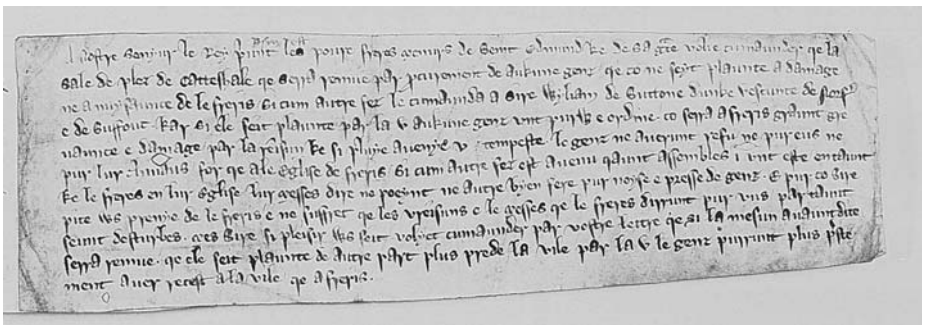 A nostre Seniur le Rey prient les poure freres menurs de Seint Edmund ke de sa grace volie cumaunder qe la
sale de plez de Catteshale qe serra remue par procurement de aukune genz qe co ne seit plaunte a damage
ne a nuysaunce de le freris si cum autre fez le cumaunda a Sire Wyliam de Suttone dunke vescunte de Norf
e de Suffouc. Kar si ele seit plaunte par la v aukune genz unt purueu e ordine co serra a freris graunt gre
vaunce e damage par la reisun ke si pluye aveyne v tempeste le genz ne averunt refu ne pureus ne
pur lur for qe a le eglise de freris si cum autre fez est avenu qaunt assembles i unt este entaunt
ke le freres en lur eglise lur messes dire ne poeynt ne autre byen fere pur noyse e presse de genz. E pur co Sire
pite vus prenye de le freris e ne suffret qe les ureisuns e le messes qe le freres dirrunt pur vus par taunt
seint desturbes. mes Sire si pleisir vus seit volyet cumaunder par vostre lettre qe si la mesun avauntdite
serra remue. qe ele seit plaunte de autre part plus prede la vile par la v le genz purrunt plus preste
ment aver recest a la vile qe a freris.